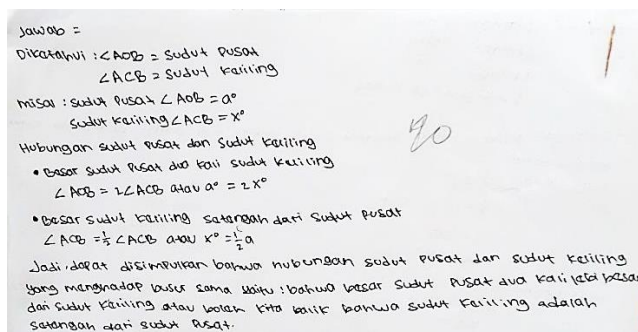 Jawab =
Diketahui : ∠AOB = Sudut Pusat
∠ACB = Sudut Keliling
misal : sudut Pusat ∠AOB = a°
sudut Keliling ∠ACB = x°
Hubungan sudut Pusat dan Sudut Keliling
• Besar sudut Pusat dua kali sudut Keliling
∠AOB = 2∠ACB atau a° = 2x°
• Besar sudut Keliling setengah dari sudut pusat
∠ACB = ½ ∠ACB atau x° = ½ a
Jadi, dapat disimpulkan bahwa hubungan sudut pusat dan sudut keliling
yang menghadap busur sama yaitu : bahwa besar sudut Pusat dua kali lebih besar
dari sudut Keliling atau boleh kita balik bahwa sudut Keliling adalah
setengah dari sudut Pusat.